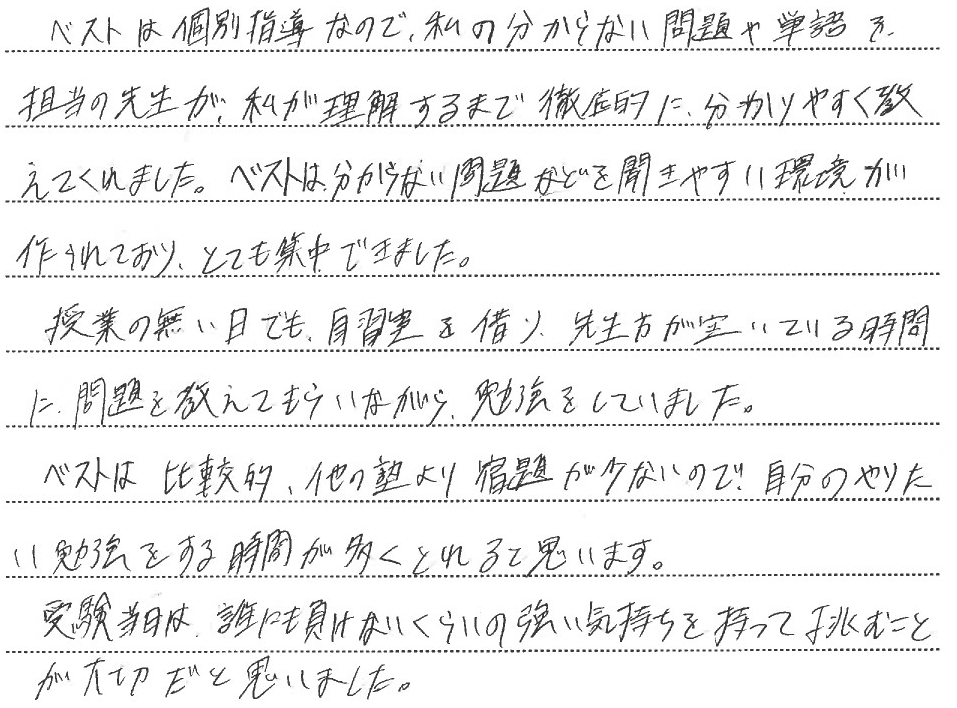 ベストは個別指導なので、私の分からない問題や単語を
担当の先生が、私が理解するまで徹底的に、分かりやすく教
えてくれました。ベストは分からない問題などを聞きやすい環境が
作られており、とても集中できました。
授業の無い日でも、自習室を借り、先生方が空いている時間
に、問題を教えてもらいながら、勉強をしていました。
ベストは比較的、他の塾より宿題が少ないので、自分のやりた
い勉強をする時間が多くとれると思います。
受験当日は、誰にも負けないくらいの強い気持ちを持って挑むこと
が大切だと思いました。